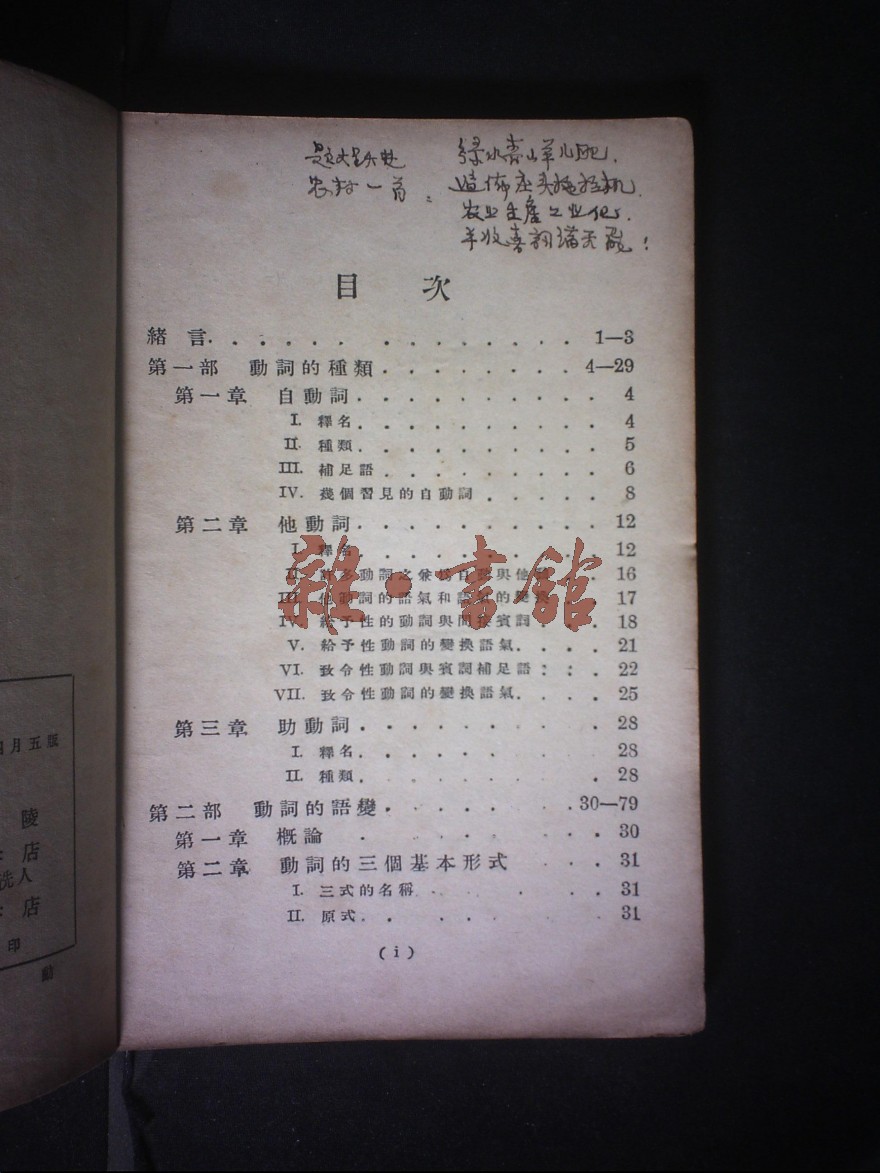 绿水青山羊儿肥,
农村一首:
农业生產工业化,
丰收喜訊满天飛!
目 次
緒 言 1—3
第一部 動詞的種類 4—29
第一章 自動詞 4
I. 釋名 4
II. 種類 5
III. 補足語 6
IV. 幾個習見的自動詞 8
第二章 他動詞 12
I. 釋名 12
II. 許多動詞之兼爲自動與他動 16
III. 他動詞的語氣和語氣的變換 17
IV. 給予性的動詞與間接賓詞 18
V. 給予性動詞的變換語氣 21
VI. 致令性動詞與賓詞補足語 22
VII. 致令性動詞的變換語氣 25
第三章 助動詞 28
I. 釋名 28
II. 種類 28
第二部 動詞的語變 30—79
第一章 概論 30
第二章 動詞的三個基本形式 31
I. 三式的名稱 31
II. 原式 31
(i)
雜·書館
月五版
陵
店
洗人
店
印